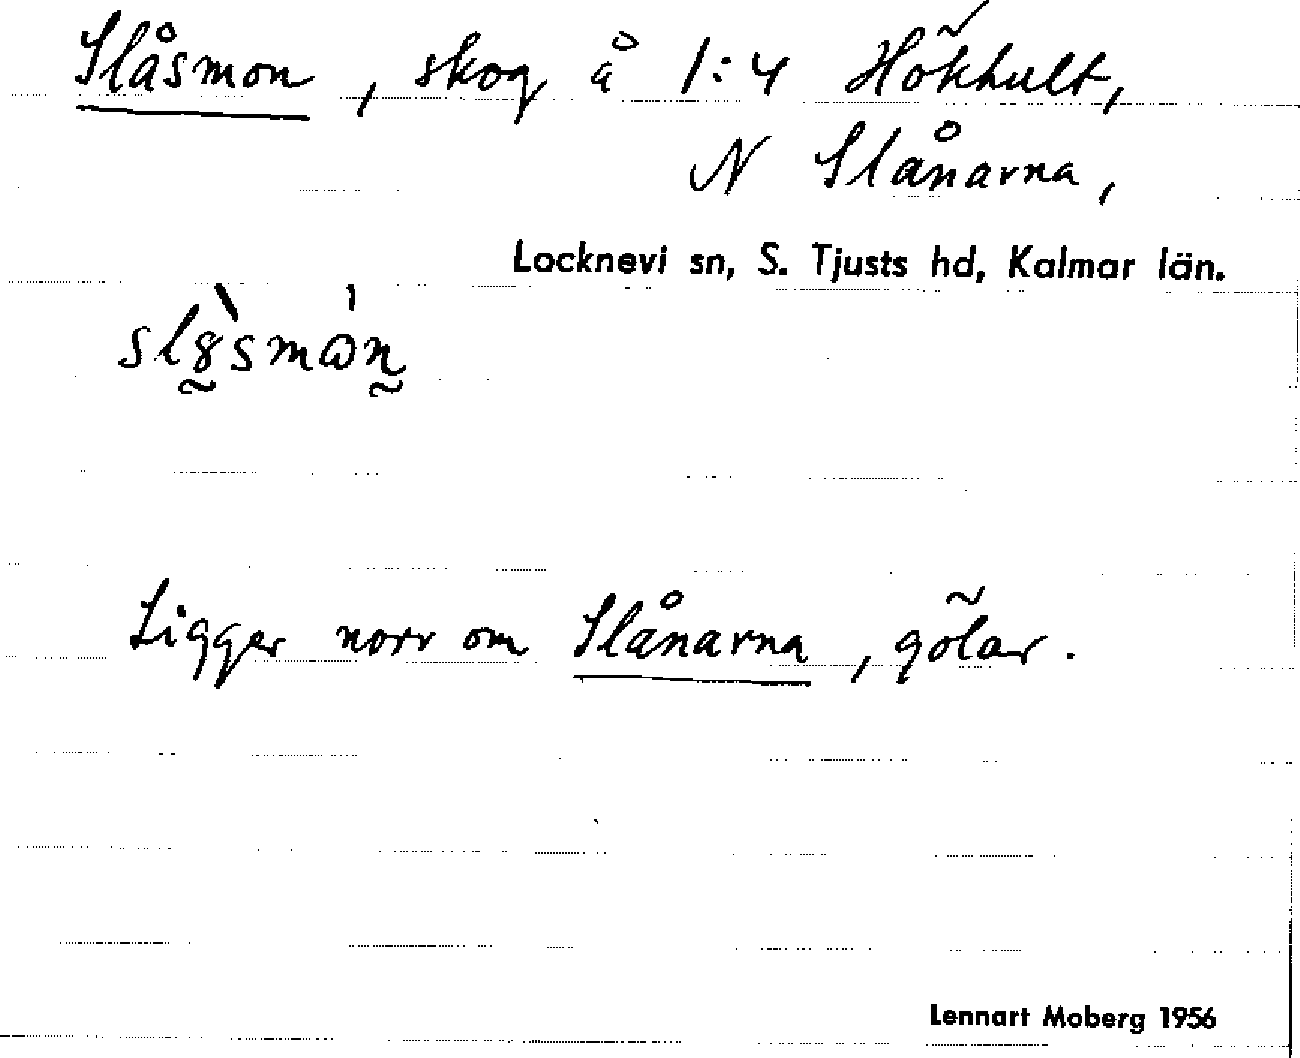 Slåsmon, skog å 1:4 Hökhult,
N Slånarna,
Locknevi sn, S. Tjusts hd, Kalmar län.
Ligger norr om Slånarna, gölar.
Lennart Moberg 1956